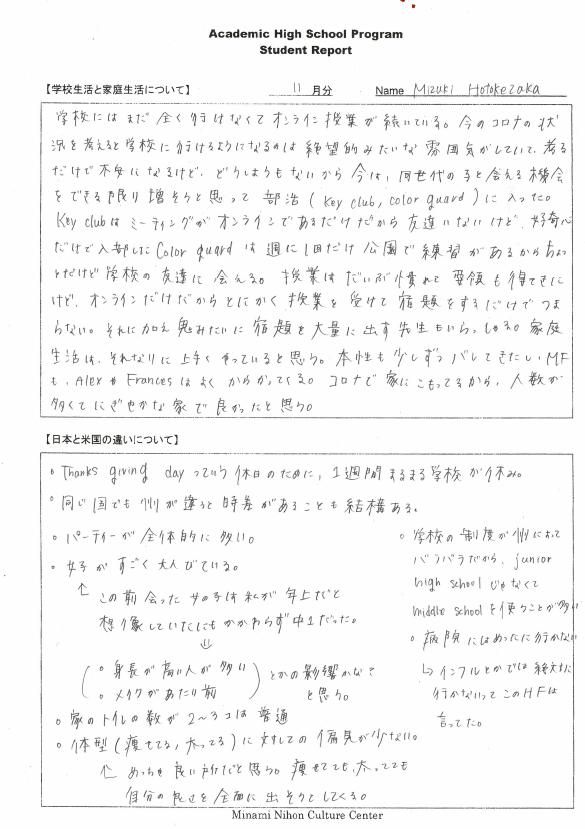 Academic High School Program
Student Report
【学校生活と家庭生活について】 11 月分 Name Mizuki Hotokezaka
学校にはまだ全く行けなくてオンライン授業が続いている。今のコロナの状
況を考えると学校に行けるようになるのは絶望的みたいな雰囲気がしていて、考る
だけで不安になるけど、どうしようもないから今は、同世代の子と会える機会
をできる限り増そうと思って部活(Key club, color guard)に入った。
Key clubはミーティングがオンラインであるだけだから友達いないけど、好奇心
だけで入部したColor guardは週に1回だけ公園で練習があるからちょっ
とだけ学校の友達に会える。授業はだいぶ慣れて要領も得てきた
けど、オンラインだけだからとにかく授業を受けて宿題をするだけでつま
らない。それに加え鬼みたいに宿題を大量に出す先生もいらっしゃる。家庭
生活は、それなりに上手くやっていると思う。本性も少しずつバレてきたし、MF
も、AlexやFrancesはよくからかってくる。コロナで家にこもってるから、人数が
多くてにぎやかな家で良かったと思う。
【日本と米国の違いについて】
。Thanks giving dayっていう休日のために、1週間まるまる学校が休み。
。同じ国でも州が違うと時差があることも結構ある。
。パーティーが全体的に多い。
。女子がすごく大人びている。
↑この前会った女の子は私が年上だと
想像していたにもかかわらず中1だった。
⇓
(。身長が高い人が多い
。メイクがあたり前)とかの影響かな?
と思う。
。家のトイレの数が2～3コは普通
。体型(痩せてる,太ってる)に対しての偏見が少ない。
↑めっちゃ良い所だと思う。痩せてても、太ってても
自分の良さを全面に出そうとしてくる。
。学校の制度が州によって
バラバラだから、junior
high schoolじゃなくて
middle schoolを使うことが多い
。病院にはめったに行かない
↳インフルとかでは絶対に
行かないってこのHFは
言ってた。
Minami Nihon Culture Center